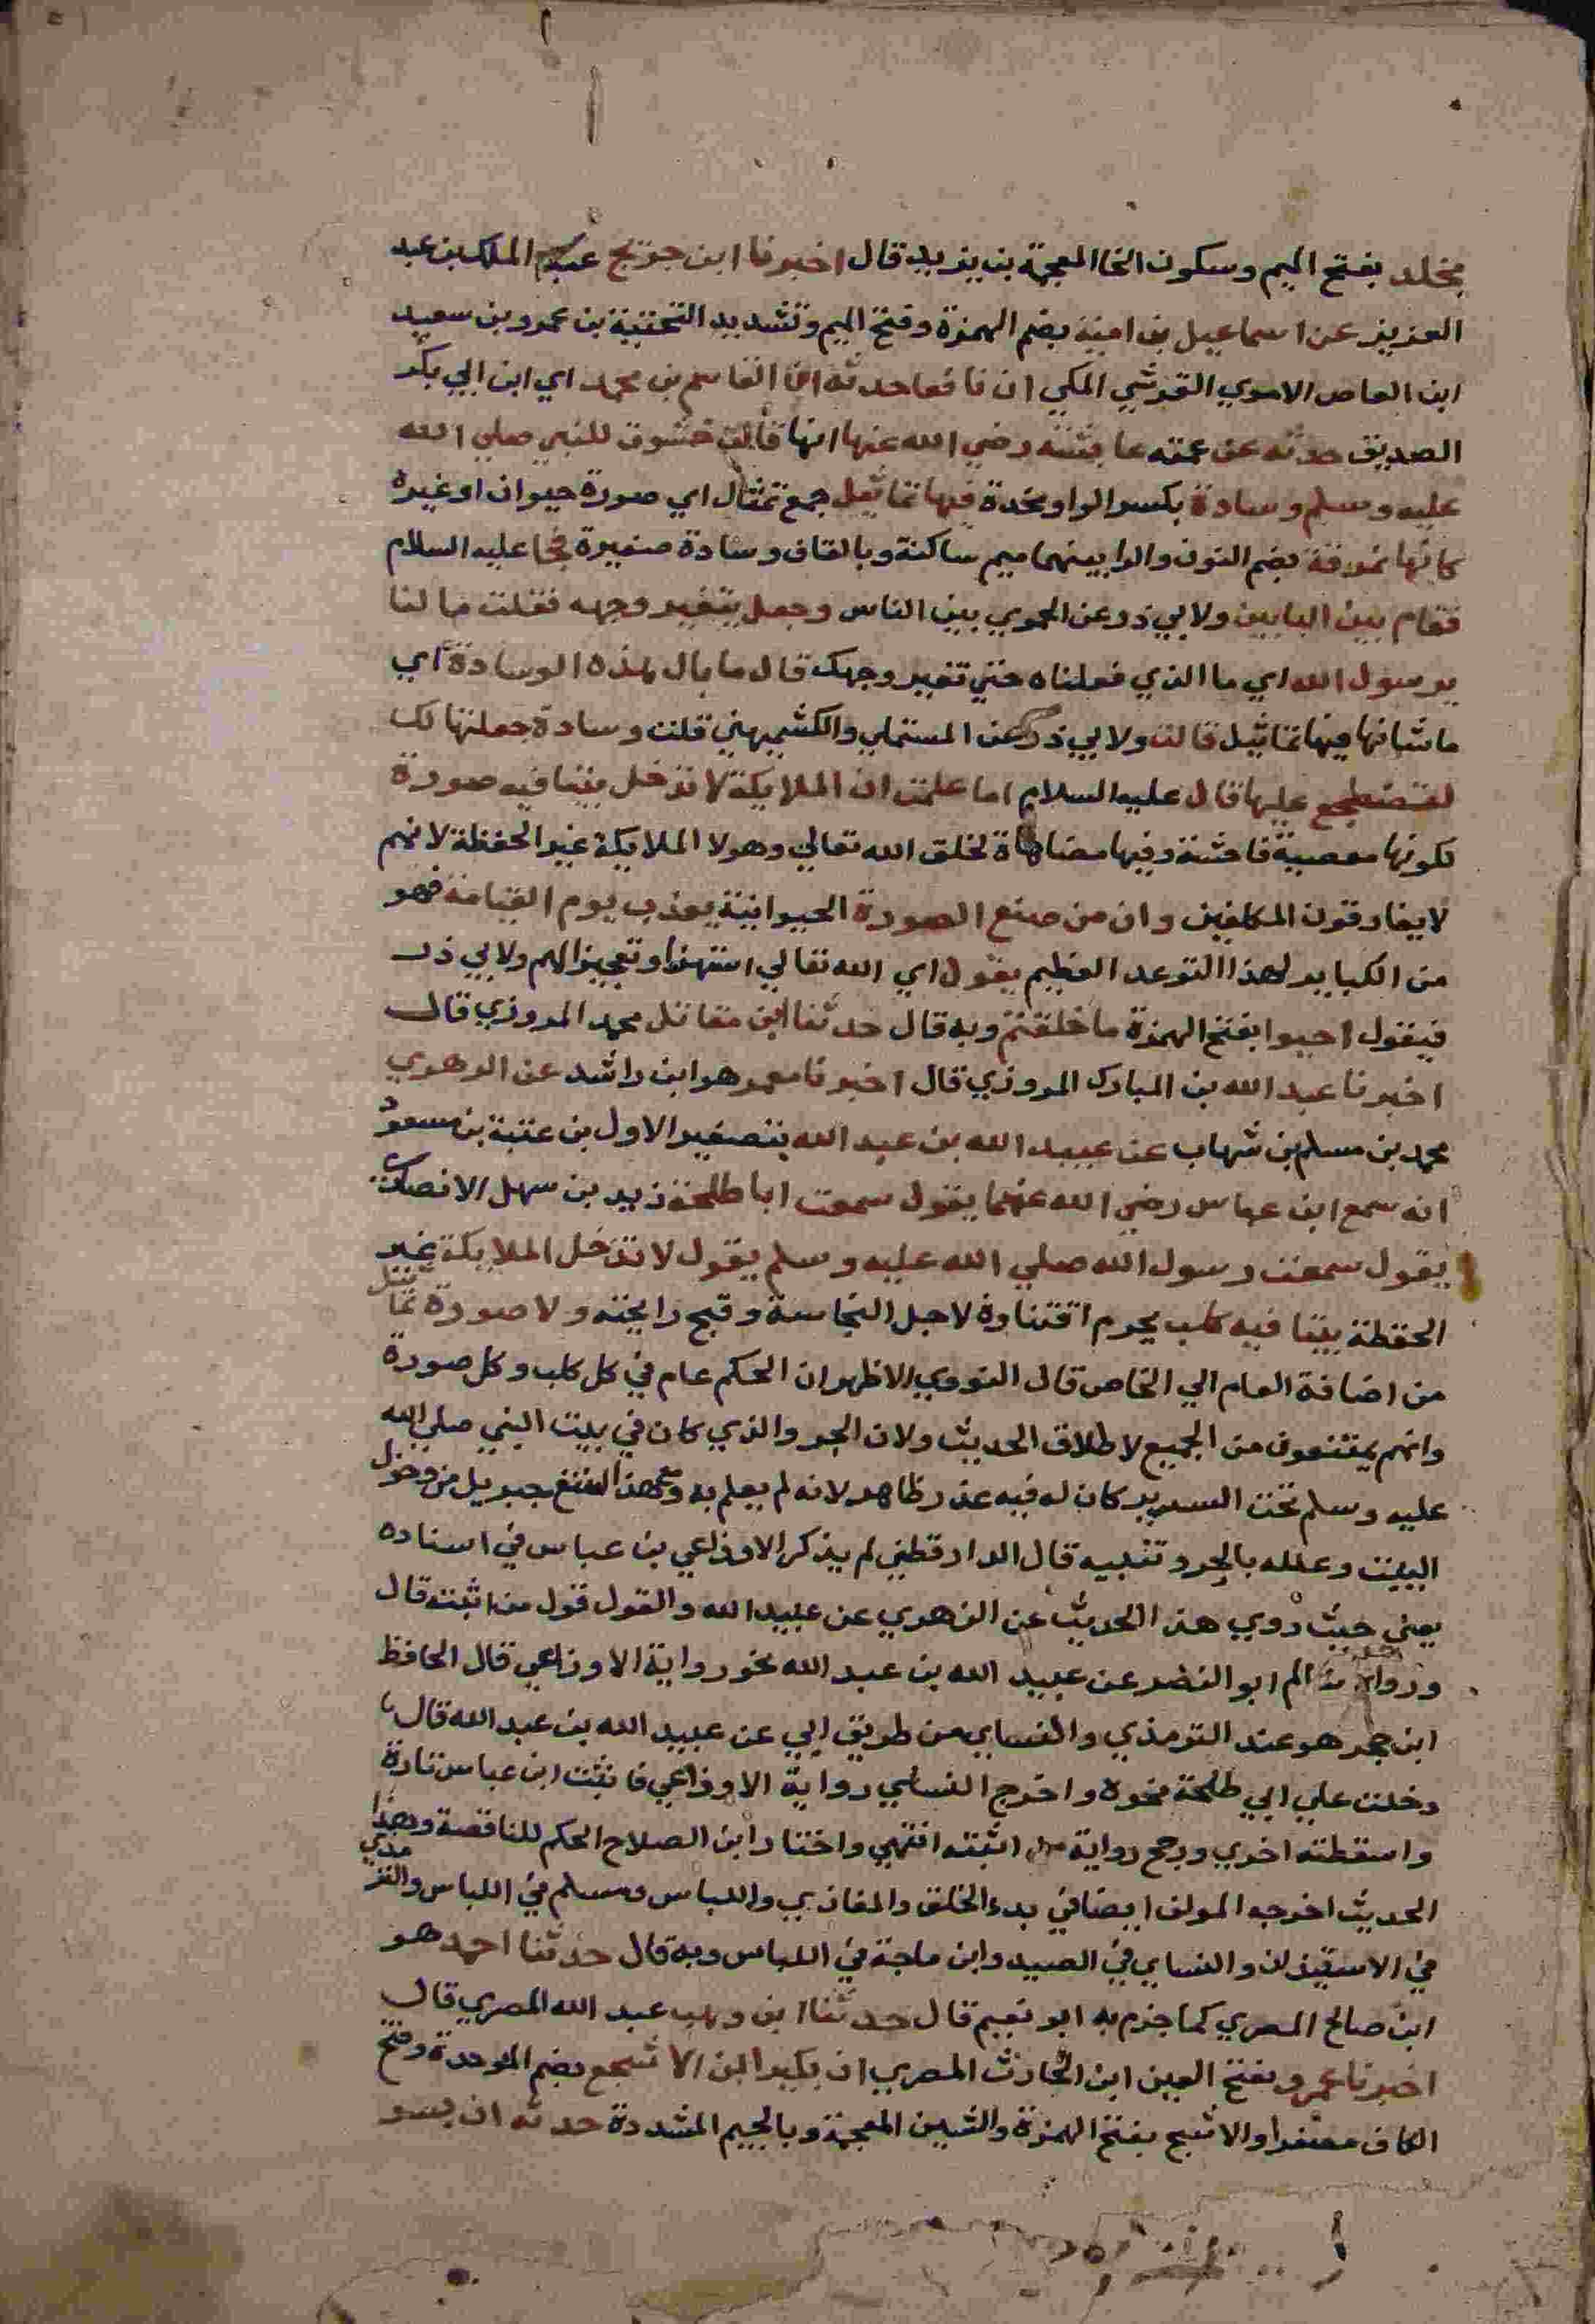 مخلد بفتح الميم وسكون الخا المعجمة بن يزيد قال اخبرنا ابن جريج عبد الملك بن عبد
العزيز عن اسماعيل بن امية بضم الهمزة وفتح الميم وتشديد التحتية بن عمرو بن سعيد
ابن العاص الاموي القرشي المكي ان نافعا حدثه ان القاسم بن محمد اي ابن ابي بكر
الصديق حدثه عن عمته عايشة رضي الله عنها انها قالت حشوت للنبي صلي الله
عليه وسلم وسادة بكسر الواو مخدة فيها تماثيل جمع تمثال اي صورة حيوان او غيره
كانها نمرقة بضم النون والرا بينهما ميم ساكنة وبالقاف وسادة صغيرة فجا عليه السلام
فقام بين البابين ولابي ذر عن الحموي بين الناس وجعل يتغير وجهه فقلت ما لنا
يرسول الله اي ما الذي فعلناه حتي تغير وجهك قال ما بال هذه الوسادة اي
ماشانها فيها تماثيل قالت ولابي ذر عن المستملي والكشميهني قلت وسادة جعلتها لك
لتضطجع عليها قال عليه السلام اما علمت ان الملايكة لا تدخل بيتا فيه صورة
لكونها معصية فاحشة وفيها مضاهاة لخلق الله تعالي وهولا الملايكة غير الحفظة لانهم
لا يفارقون المكلفين وان من صنع الصورة الحيوانية يعذب يوم القيامة فهو
من الكباير لهذا التوعد العظيم يقول اي الله تعالي استهزا وتعجيزا لهم ولابي ذر
فيقول احيوا بفتح الهمزة ما خلقتم وبه قال حدثنا ابن مقاتل محمد المروزي قال
اخبرنا عبد الله بن المبارك المروزي قال اخبرنا معمر هو ابن راشد عن الزهري
محمد بن مسلم بن شهاب عن عبيد الله بن عبد الله بتصغير الاول بن عتبة بن مسعود
انه سمع ابن عباس رضي الله عنهما يقول سمعت ابا طلحة زيد بن سهل الانصاري
يقول سمعت رسول الله صلي الله عليه وسلم يقول لا تدخل الملايكة غير
الحفظة بيتا فيه كلب يحرم اقتناوة لاجل النجاسة وقبح رايحته ولا صورة تماثيل
من اضافة العام الي الخاص قال النووي الاظهر ان الحكم عام في كل كلب وكل صورة
وانهم يمتنعون من الجميع لاطلاق الحديث ولان الجرو الذي كان في بيت النبي صلي الله
عليه وسلم تحت السرير كان له فيه عذر ظاهر لانه لم يعلم به ومع هذا امتنع جبريل من دخول
البيت وعلله بالجرو تنبيه قال الدارقطني لم يذكر الاوزاعي بن عباس في اسناده
يعني حيث روي هذا الحديث عن الزهري عن عبيد الله والقول قول من اثبته قال
ورواه سالم ابو النضر عن عبيد الله بن عبد الله نحو رواية الاوزاعي قال الحافظ
ابن حجر هو عند الترمذي والنساي من طريق ابي عن عبيد الله بن عبد الله قال
دخلت علي ابي طلحة نحوه واخرج النساي رواية الاوزاعي فاثبت ابن عباس تارة
واسقطته اخري ورجح رواية من اثبته انتهي واختار ابن الصلاح الحكم للناقصة وهذا
الحديث اخرجه المولف ايضا في بدء الخلق والمغازي واللباس ومسلم في اللباس والترمذي
في الاستيذان والنساي في الصيد وابن ماجة في اللباس وبه قال حدثنا احمد هو
ابن صالح المصري كما جزم به ابو نعيم قال حدثنا ابن وهب عبد الله المصري قال
اخبرنا عمرو بفتح العين ابن الحارث المصري ان بكير ابن الاشجع بضم الموحدة وفتح
الكاف مصغرا والاشج بفتح الهمزة والشين المعجمة وبالجيم المشددة حدثه ان بسر